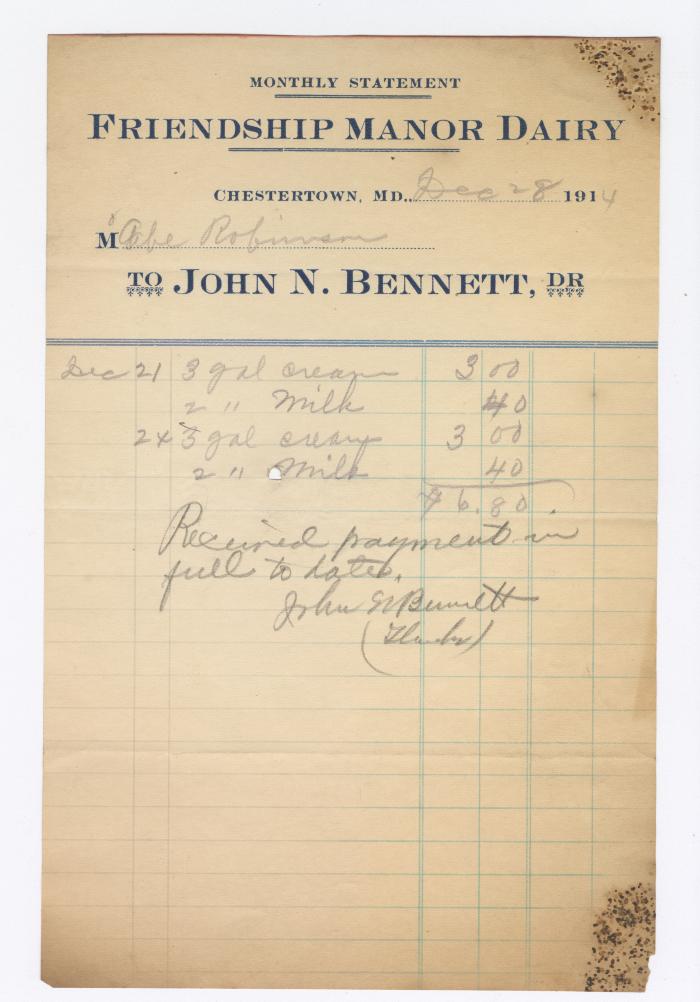 MONTHLY STATEMENT
FRIENDSHIP MANOR DAIRY
CHESTERTOWN, MD., Dec 28 1914
Mr Abe Robinson
TO JOHN N. BENNETT, DR
Dec 21 3 gal cream 3 00
2 " Milk 40
24 3 gal cream 3 00
2 " Milk 40
$6.80
Received payment in
full to date.
John N Bennett
(Thanks)